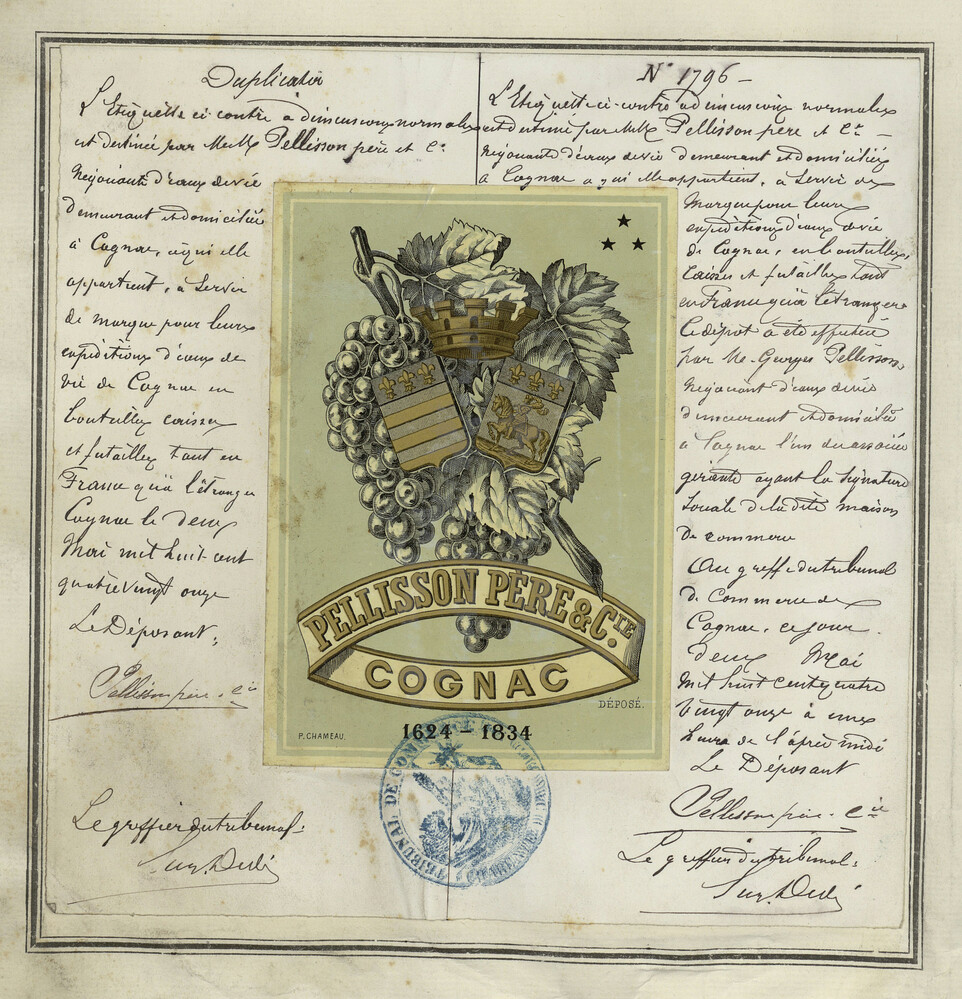 Duplicata
L'Etiquette ci-contre à dimensions normales
est destinée par MM. Pellisson père et Cie
Négociants d'eaux de vie
demeurant et domiciliés
à Cognac, à qui elle
appartient, à servir
de marque pour leurs
expéditions d'eaux de
vie de Cognac en
bouteilles caisses
et futailles tant en
France qu'à l'étranger
Cognac le deux
Mai mil huit cent
quatre vingt onze
Le Déposant,
Pellisson père & Cie
Le greffier du tribunal.
N° 1796 –
L'Etiquette ci-contre à dimensions normales
est destinée par MM. Pellisson père et Cie –
Négociants d'eaux de vie demeurant et domiciliés
à Cognac à qui elle appartient, à servir de
Marque pour leurs
expéditions d'eaux de vie
de Cognac, en bouteilles,
caisses et futailles tant
en France qu'à l'étranger
Le dépôt a été effectué
par M. Georges Pellisson,
Négociant d'eaux de vie
demeurant et domicilié
à Cognac l'un des associés
gérants ayant la signature
sociale de la dite maison
de commerce
Au greffe du tribunal
de Commerce de
Cognac, ce jour
deux Mai
mil huit cent quatre
vingt onze à
heures de l'après midi
Le Déposant
Pellisson père & Cie
Le greffier du tribunal.
PELLISSON PÈRE & CIE
COGNAC
DÉPOSÉ.
P. CHAMEAU.
1624 – 1834
TRIBUNAL DE COMMERCE